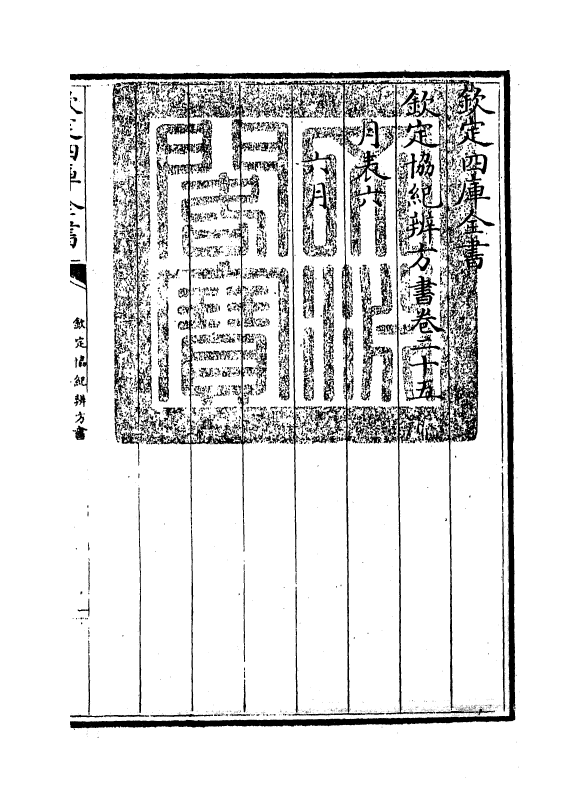 欽定四庫全書
欽定協紀辨方書卷二十五
月表六
六月
欽定四庫全書
欽定協紀辨方書
一